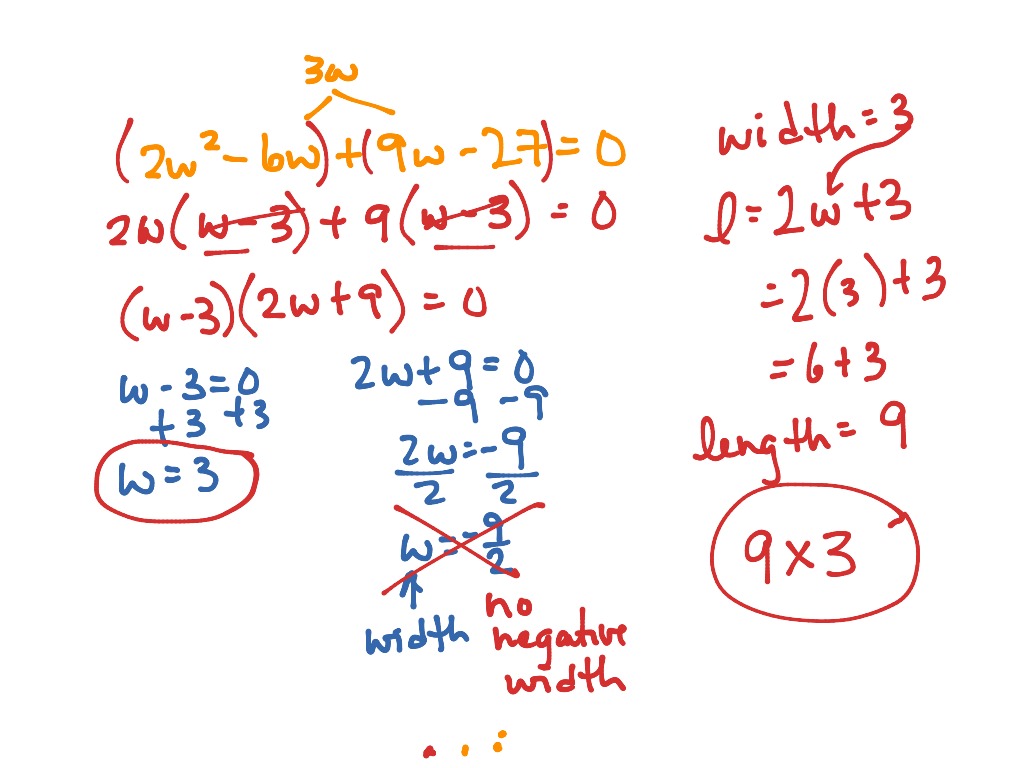 3w
(2w² - 6w) + (9w - 27) = 0
2w(w - 3) + 9(w - 3) = 0
(w - 3)(2w + 9) = 0
w - 3 = 0
+ 3 + 3
w = 3
2w + 9 = 0
- 9 - 9
2w = -9
2 2
w = -9/2
width
no
negative
width
width = 3
l = 2w + 3
= 2(3) + 3
= 6 + 3
length = 9
9 x 3